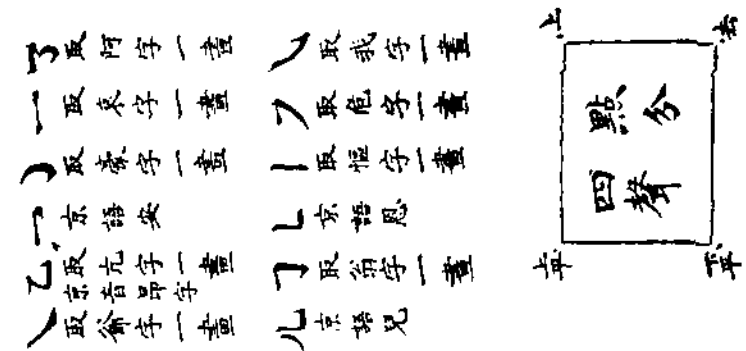 取阿字一畫
一取哀字一畫
取豪字一畫
京語安
乙取亢字一畫
京音昂字
取爺字一畫
取我字一畫
取危字一畫
取慪字一畫
京語恩
取翁字一畫
儿京語兒
上 去
點分
四聲
上平 下平